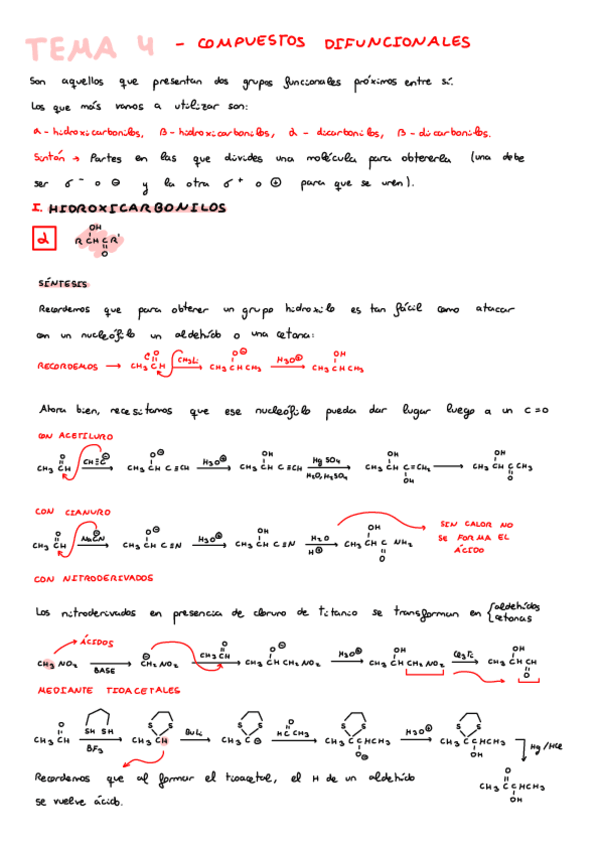 TEMA 4 - COMPUESTOS DIFUNCIONALES
Son aquellos que presentan dos grupos funcionales próximos entre sí.
Los que más vamos a utilizar son:
α-hidroxicarbonilos, β-hidroxicarbonilos, α-dicarbonilos, β-dicarbonilos.
Sintón → Partes en las que divides una molécula para obtenerla (una debe
ser σ⁻ o ⊖ y la otra σ⁺ o ⊕ para que se unen).
I. HIDROXICARBONILOS
OH
α R CH C R'
O
SÍNTESIS
Recordemos que para obtener un grupo hidroxilo es tan fácil como atacar
con un nucleófilo un aldehído o una cetona:
O O⊖ OH
RECORDEMOS → CH3 CH CH3Li CH3 CH CH3 H3O⊕ CH3 CH CH3
Ahora bien, necesitamos que ese nucleófilo pueda dar lugar luego a un C=O
CON ACETILURO
O O⊖ OH OH OH
CH3 CH CH≡C⊖ CH3 CH C≡CH H3O⊕ CH3 CH C≡CH HgSO4 CH3 CH C=CH2 CH3 CH C CH3
H2O, H2SO4 OH O
CON CIANURO
O O⊖ OH OH
CH3 CH NaCN CH3 CH C≡N H3O⊕ CH3 CH C≡N H2O CH3 CH C NH2
H⊕ O
SIN CALOR NO
SE FORMA EL
ÁCIDO
CON NITRODERIVADOS
Los nitroderivados en presencia de cloruro de titanio se transforman en { aldehídos
cetonas
ÁCIDOS
O O⊖ OH OH
CH3 NO2 BASE ⊖CH2 NO2 CH3 CH CH3 CH CH2 NO2 H3O⊕ CH3 CH CH2 NO2 Cl3Ti CH3 CH CH
O
MEDIANTE TIOACETALES
O SH SH S S S S O S S S S
CH3 CH BF3 CH3 CH BuLi CH3 C⊖ HC CH3 CH3 C CHCH3 H3O⊕ CH3 C CHCH3
O⊖ OH
Hg/HCl
Recordemos que al formar el tioacetal, el H de un aldehído
se vuelve ácido.
O
CH3 C CHCH3
OH